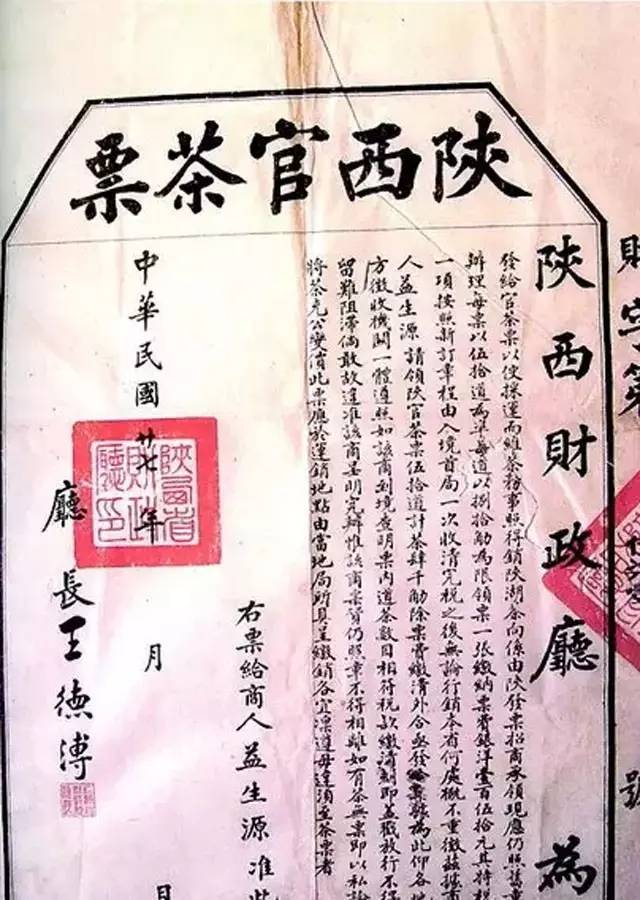 陝西官茶票
財字第
號
陝西財政廳為
發給官茶票以便採運而維茶務事照得銷陝湖茶向係由陝發票招商承領現應仍照舊章
辦理每票以伍拾道為準每道以捌拾觔為限領票一張繳納票費銀洋壹百伍拾元其特稅
一項按照新訂章程由入境首局一次收清完稅之後無論行銷本省何處概不重徵茲據商
人益生源請領陝官茶票伍拾道計茶肆千觔除票費繳清外合亟發給茶票為此仰各地
方徵收機關一體遵照如該商到境查明票內道茶數目相符稅款繳清即蓋戳放行不得
留難阻滯倘敢故違准該商呈明究辦惟該商票貨仍照章不得相離如有茶無票即以私論
將茶充公變價此票應於運銷地點由當地局所具呈繳銷各宜凜遵毋違須至茶票者
右票給商人益生源准此
中華民國廿七年 月
廳長王德溥
陝西省財政廳印